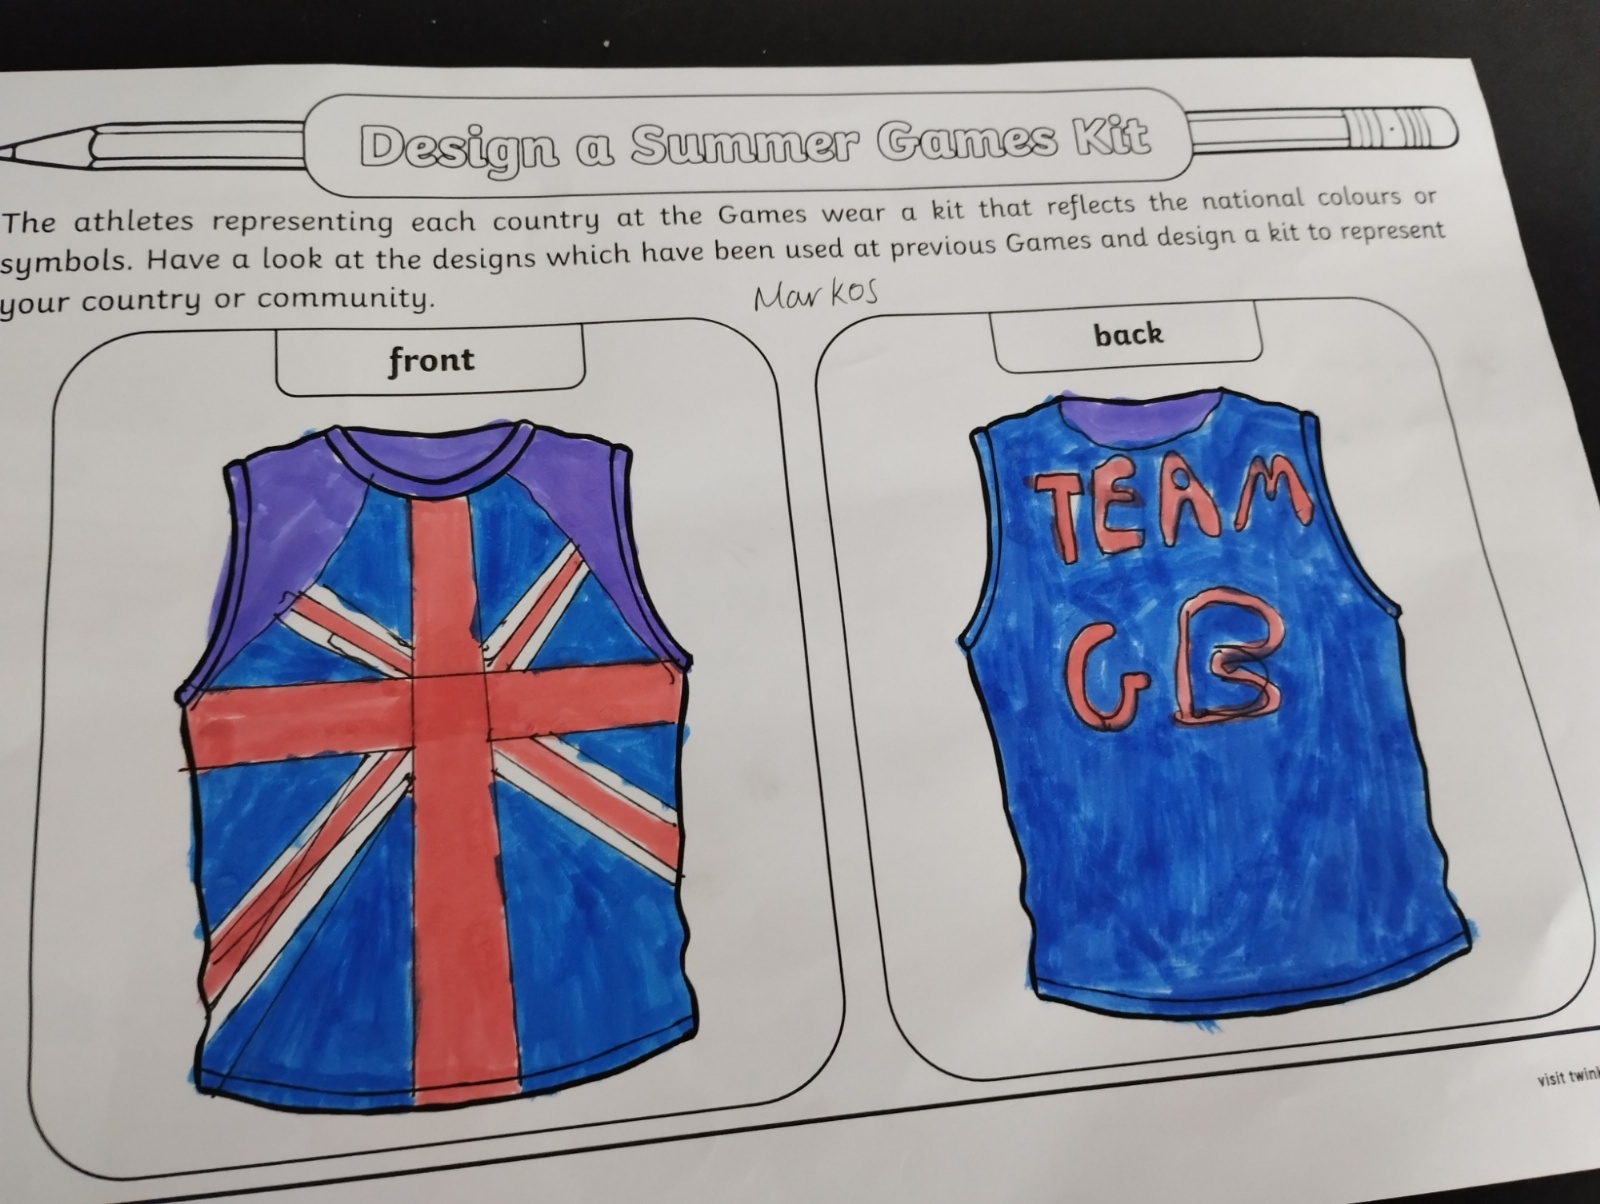 Design a Summer Games Kit
The athletes representing each country at the Games wear a kit that reflects the national colours or
symbols. Have a look at the designs which have been used at previous Games and design a kit to represent
your country or community.
Markos
front
back
TEAM
GB
visit